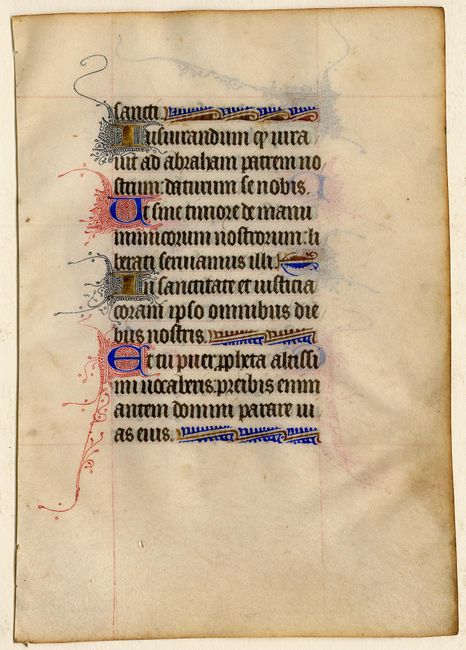 sancti.
Iusiurandum q̄ iura
uit ad abraham patrem no
strum: daturum se nobis.
Ut sine timore de manu
inimicorum nostrorum: li
berati seruiamus illi.
In sanctitate et iusticia
coram ipso omnibus die
bus nostris.
Et tu puer ꝓpheta altissi
mi uocaberis: preibis enim
antem domini parare ui
as eius.